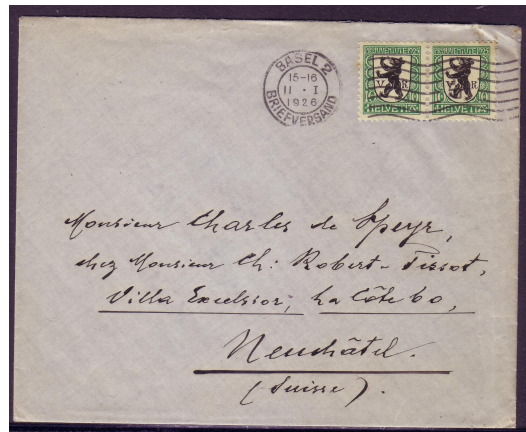 BASEL 2
15-16
11 · I
1926
BRIEFVERSAND
PRO JUVENTUTE 1925 PRO JUVENTUTE 1925
V R V R
10 10 10 10
HELVETIA HELVETIA
Monsieur Charles de Speyr,
chez Monsieur Ch: Robert-Tissot,
Villa Excelsior, La Côte 60,
Neuchâtel.
(Suisse).